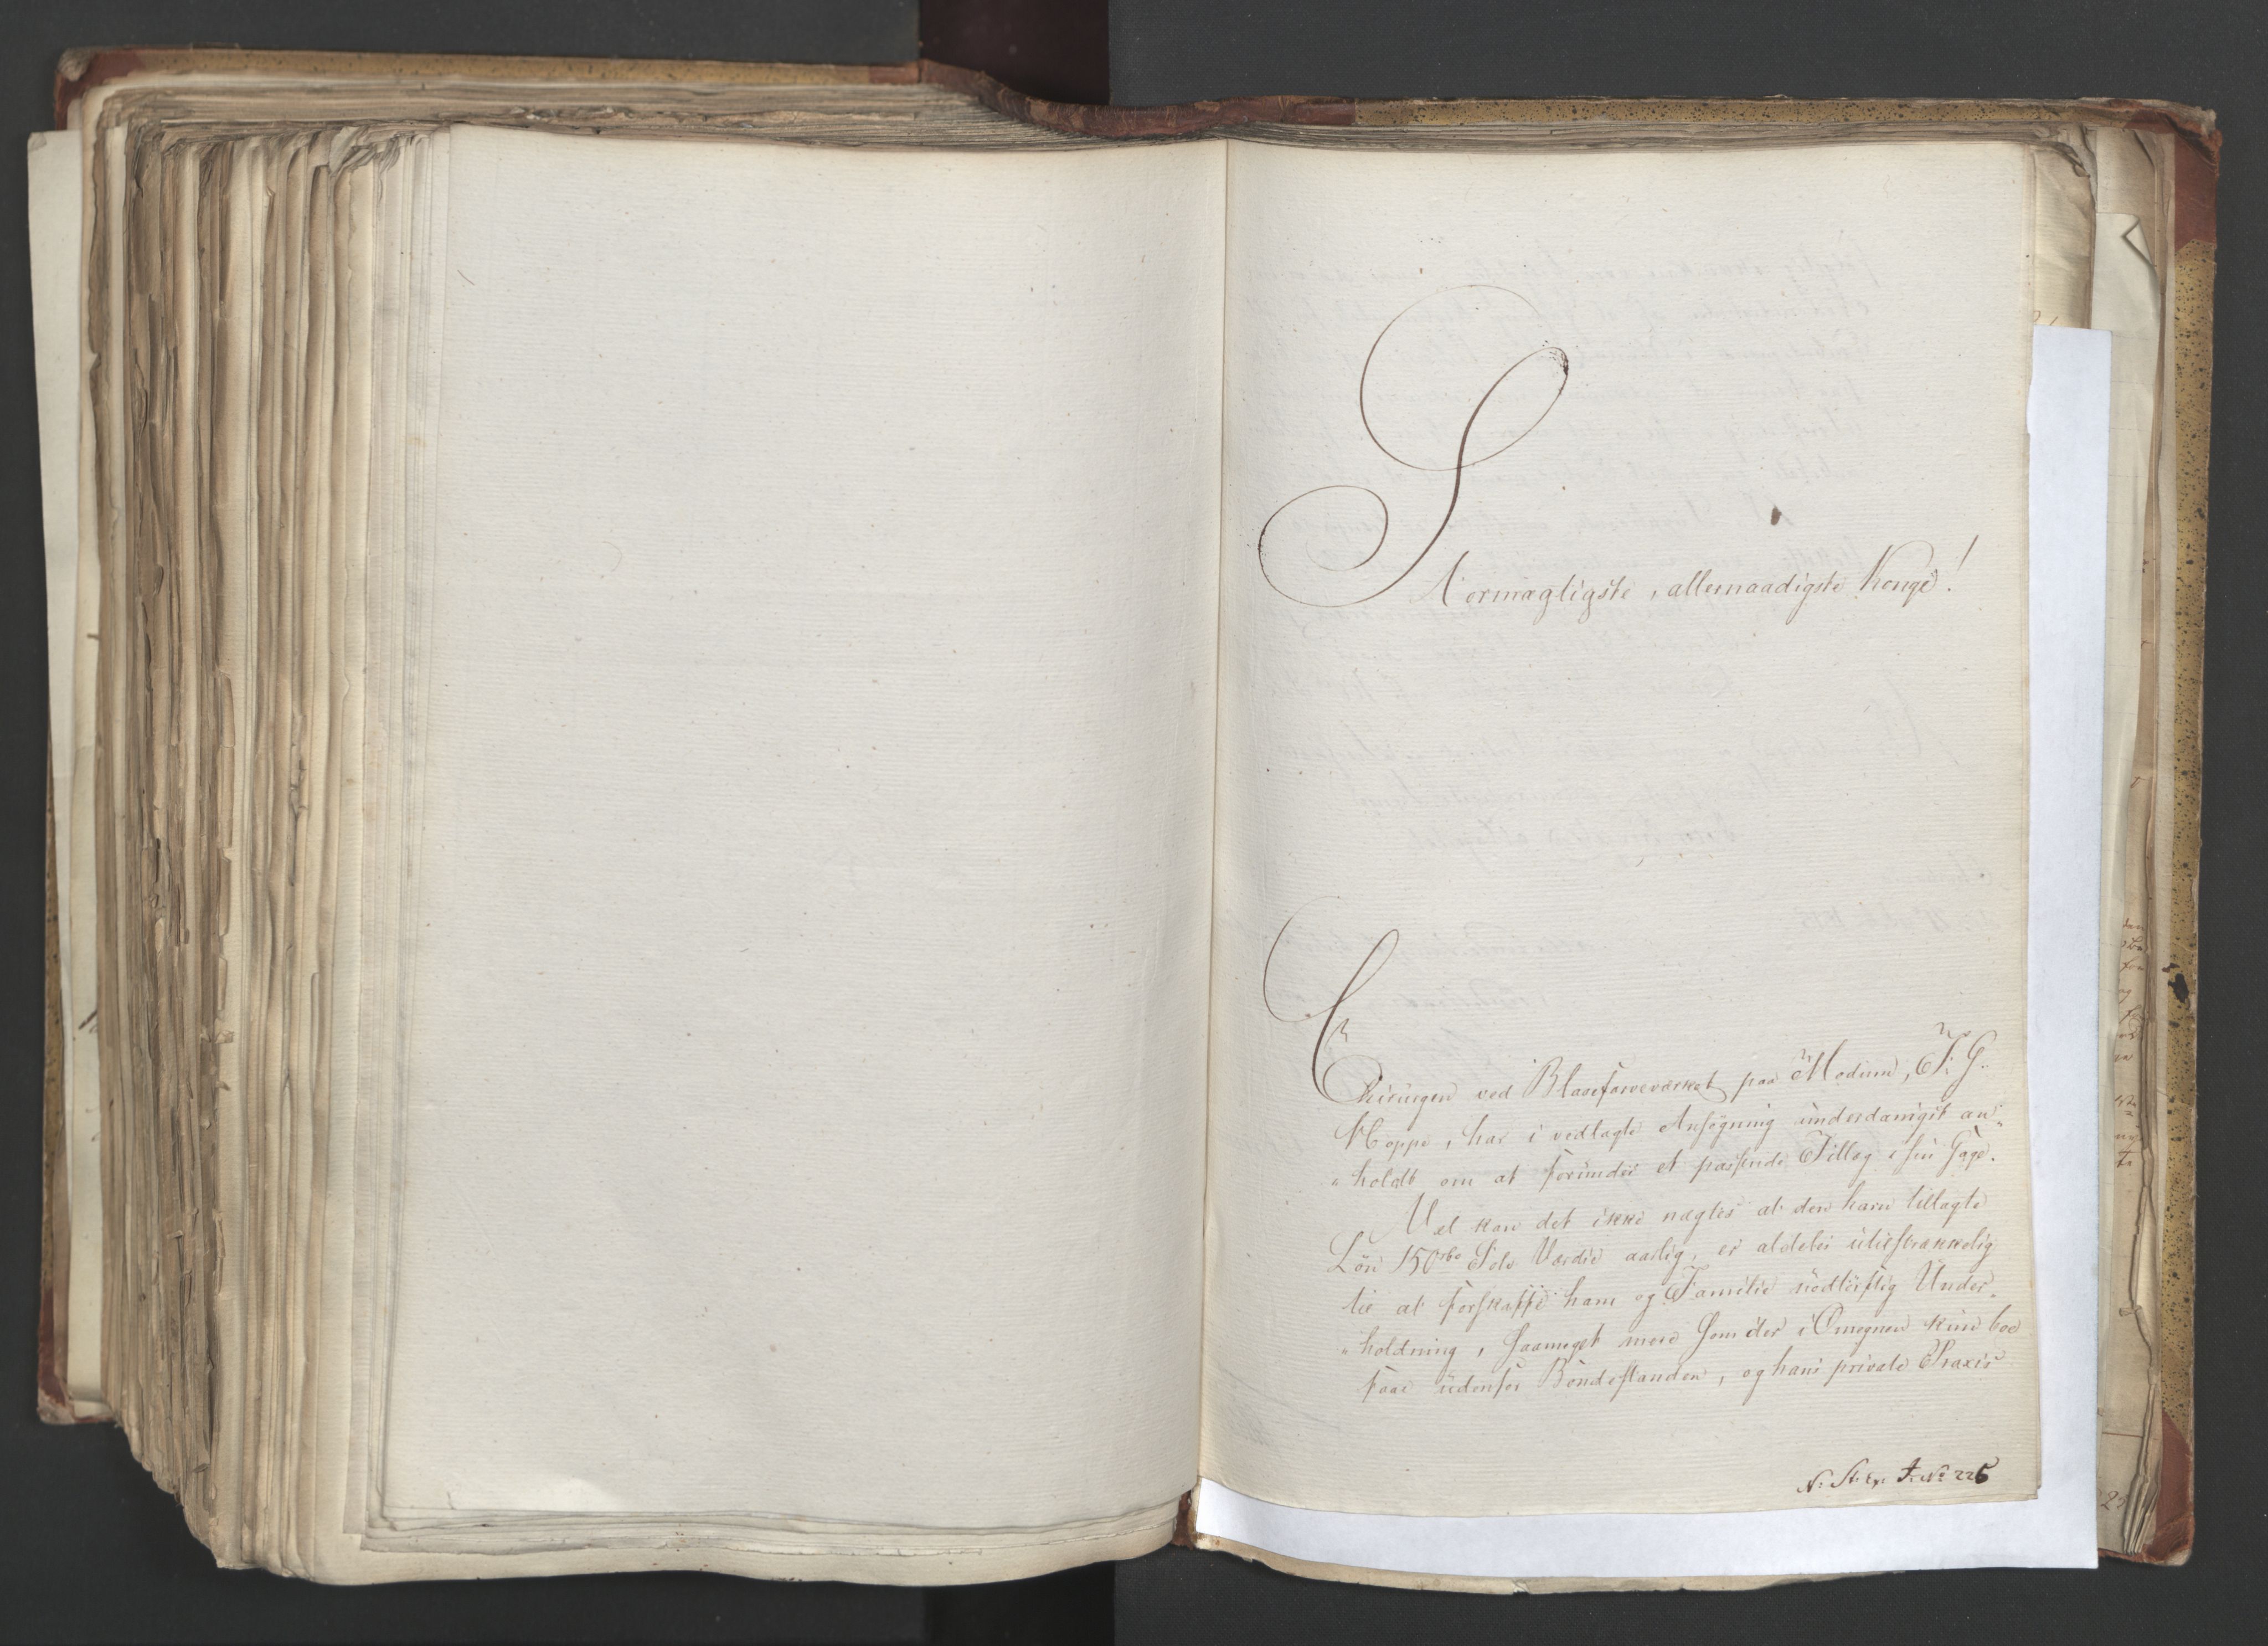 Stormægtigste, allernaadigste Konge!
Chirurgen ved Blaafarveværket paa Modum, J: G.
Hoppe, har i vedlagte Ansøgning underdanigst an-
holdt om at forundes et passende Tillæg i sin Gage.
Vel kan det ikke nægtes at den ham tillagte
Løn 150 rbd Sølv Værdie aarlig, er aldeles utilstrækkelig
til at forskaffe ham og Familie nødtørftig Under-
holdning, saameget mere som der i Omegnen kun boe
faae udenfor Bondestanden, og hans private Praxis
N: St: Ex: J: No 226